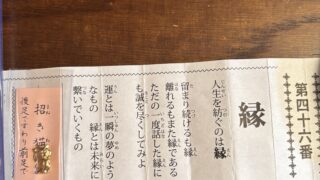 第四十六番
縁
人生を紡ぐのは縁
留まり続けるも縁
離れるもまた縁である
ただの一度話した縁に
も誠を尽くしてみよ
運とは一瞬の夢のよう
なもの 縁とは未来に
繋いでいくもの
招き猫
後足ですわり前足で